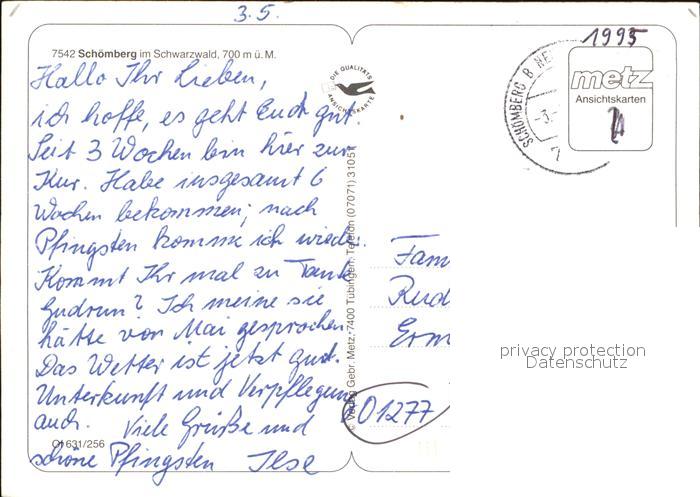 3.5.
1995
7542 Schömberg im Schwarzwald, 700 m ü. M.
Hallo Ihr Lieben,
ich hoffe, es geht Euch gut.
Seit 3 Wochen bin hier zur
Kur. Habe insgesamt 6
Wochen bekommen; nach
Pfingsten komme ich wieder.
Kommt Ihr mal zu Tante
Gudrun? Ich meine sie
hätte von Mai gesprochen.
Das Wetter ist jetzt gut.
Unterkunft und Verpflegung
auch. Viele Grüße und
schöne Pfingsten Ilse
O1631/256
DIE QUALITÄTS
ANSICHTSKARTE
Verlag Gebr. Metz, 7400 Tübingen, Telefon (07071) 31051
SCHÖMBERG B NE
metz
Ansichtskarten
Fam
Rud
Erm
01277
privacy protection
Datenschutz